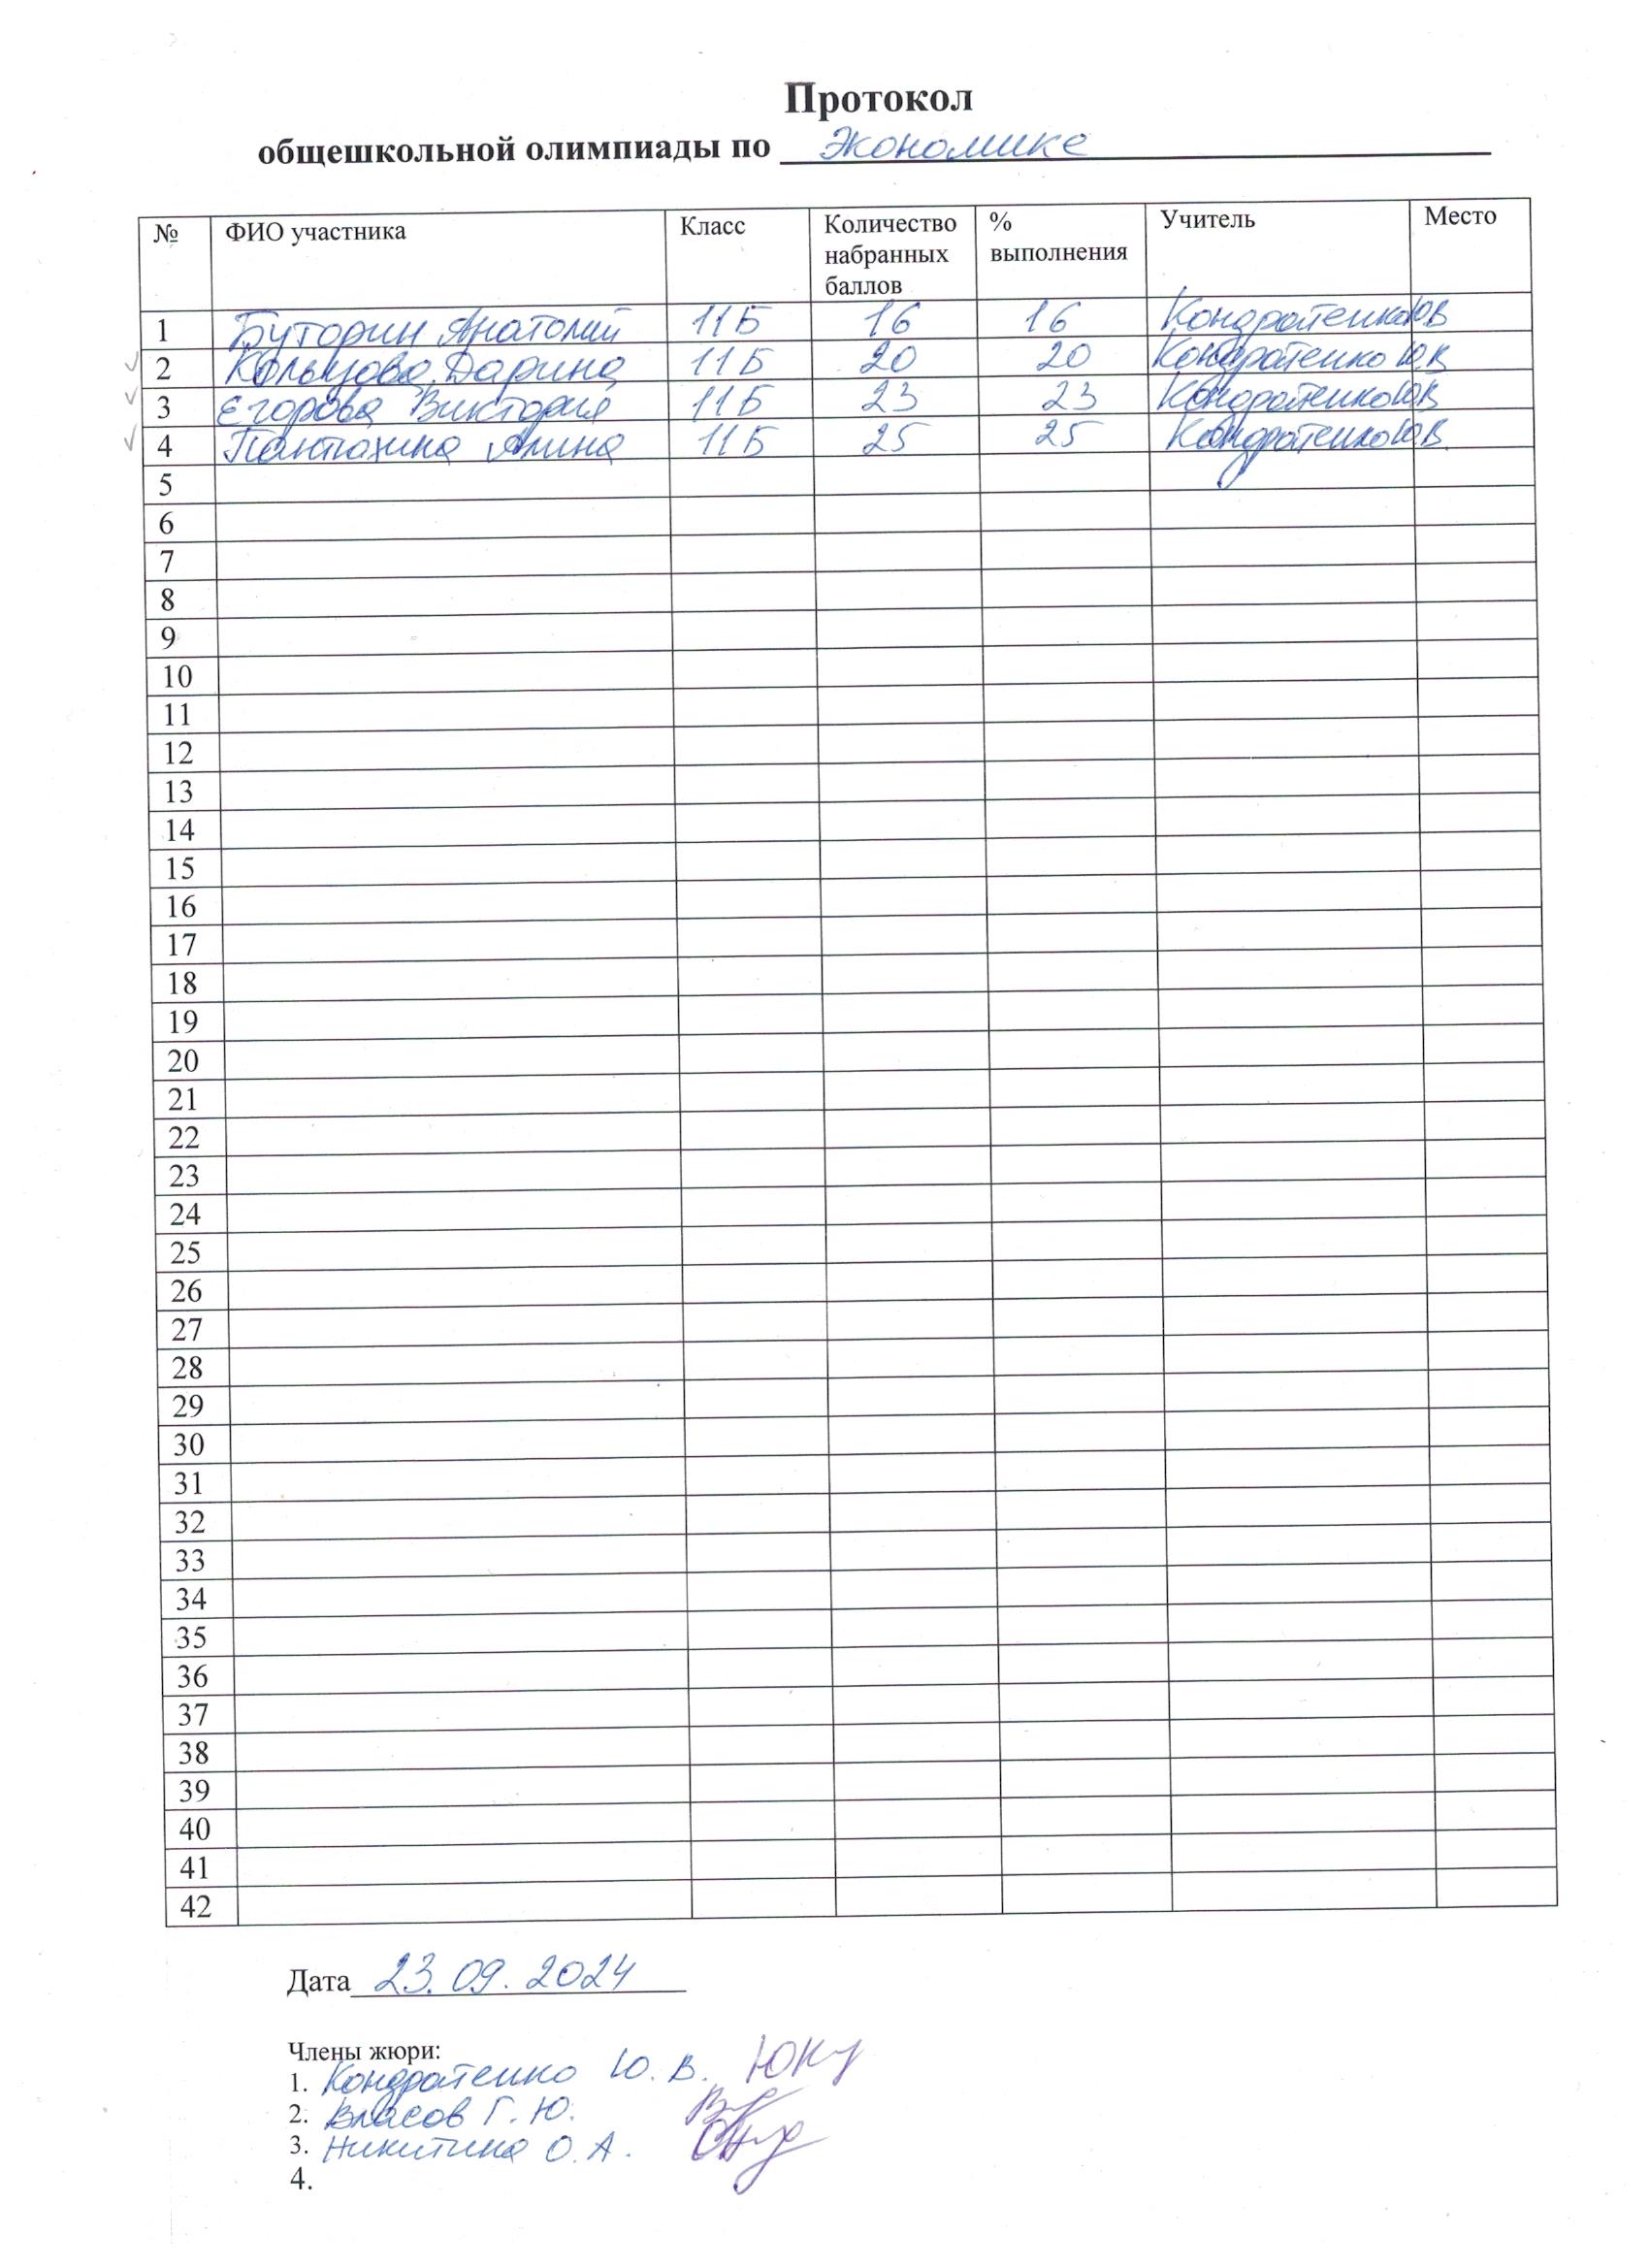 Протокол
общешкольной олимпиады по Экономике
№ ФИО участника Класс Количество набранных баллов % выполнения Учитель Место
1 Буторин Анатолий 11Б 16 16 Кондратенко Ю.В
2 Кольцова Дарина 11Б 20 20 Кондратенко Ю.В
3 Егорова Виктория 11Б 23 23 Кондратенко Ю.В
4 Алина 11Б 25 25 Кондратенко Ю.В.
5
6
7
8
9
10
11
12
13
14
15
16
17
18
19
20
21
22
23
24
25
26
27
28
29
30
31
32
33
34
35
36
37
38
39
40
41
42
Дата 23.09.2024
Члены жюри:
1. Кондратенко Ю.В.
2. Власов Г.Ю.
3. Никитина О.А.
4.